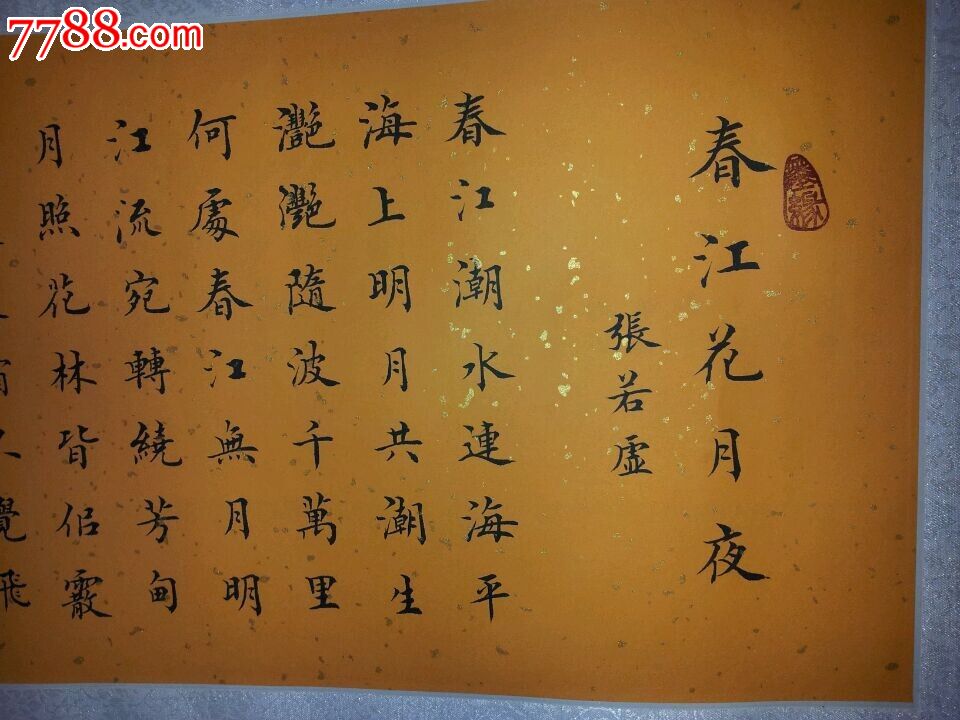 7788.com
春江花月夜
張若虛
春江潮水連海平
海上明月共潮生
灩灩隨波千萬里
何處春江無月明
江流宛轉繞芳甸
月照花林皆佀霰
覺飛